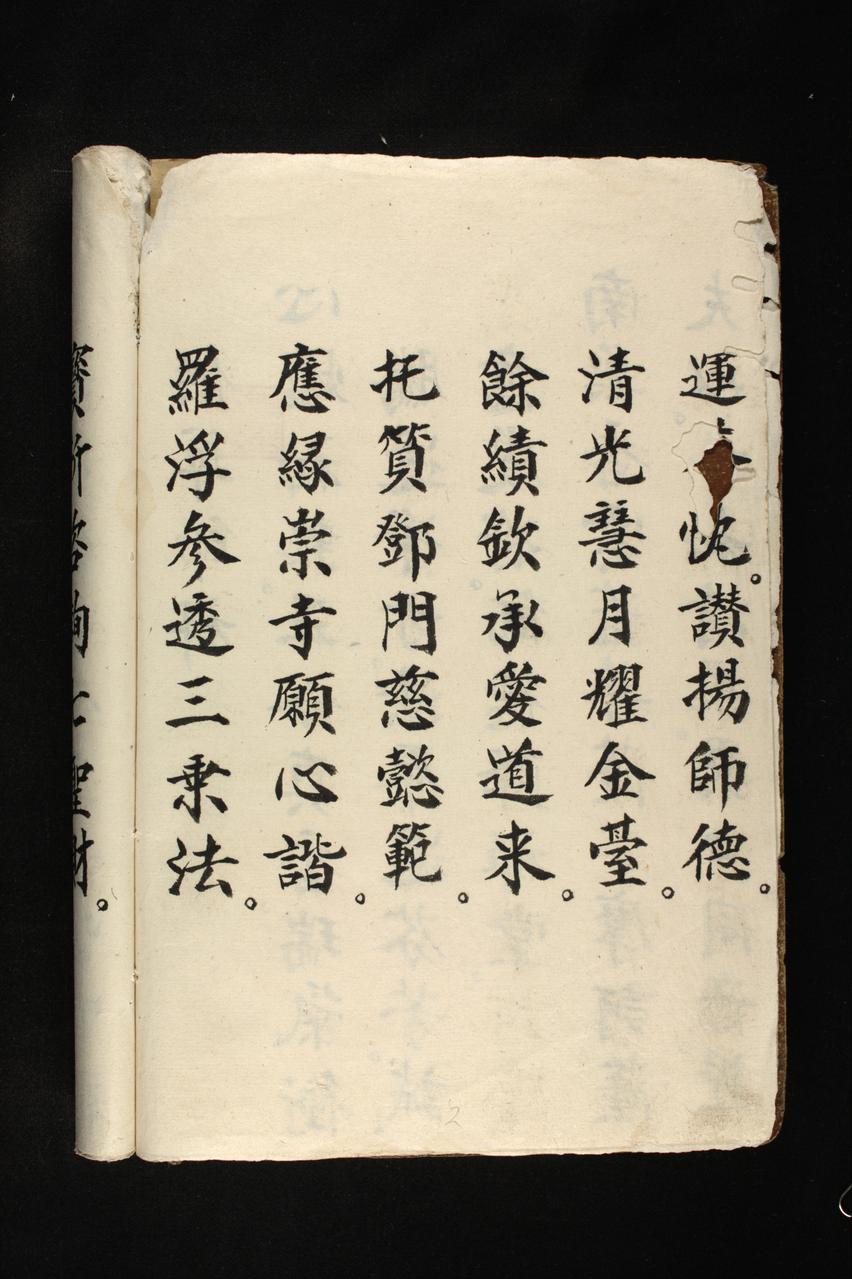 運忱。讃揚師德。
清光慧月耀金臺。
餘績欽承愛道来。
托質鄧門慈懿範。
應縁崇寺願心諧。
羅浮參透三乗法。
聖財。